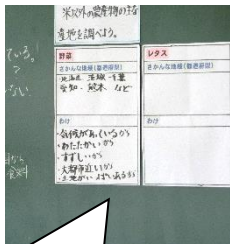 米以外の農産物の主な
産地を調べよう。
野菜
さかんな地域(都道府県)
北海道 茨城 千葉
愛知、熊本 など
わけ
・気候があっているから
・あたたかいから
・すずしいから
・大都市に近いから
レタス
さかんな地域(都道府県)
わけ
ている。
ない